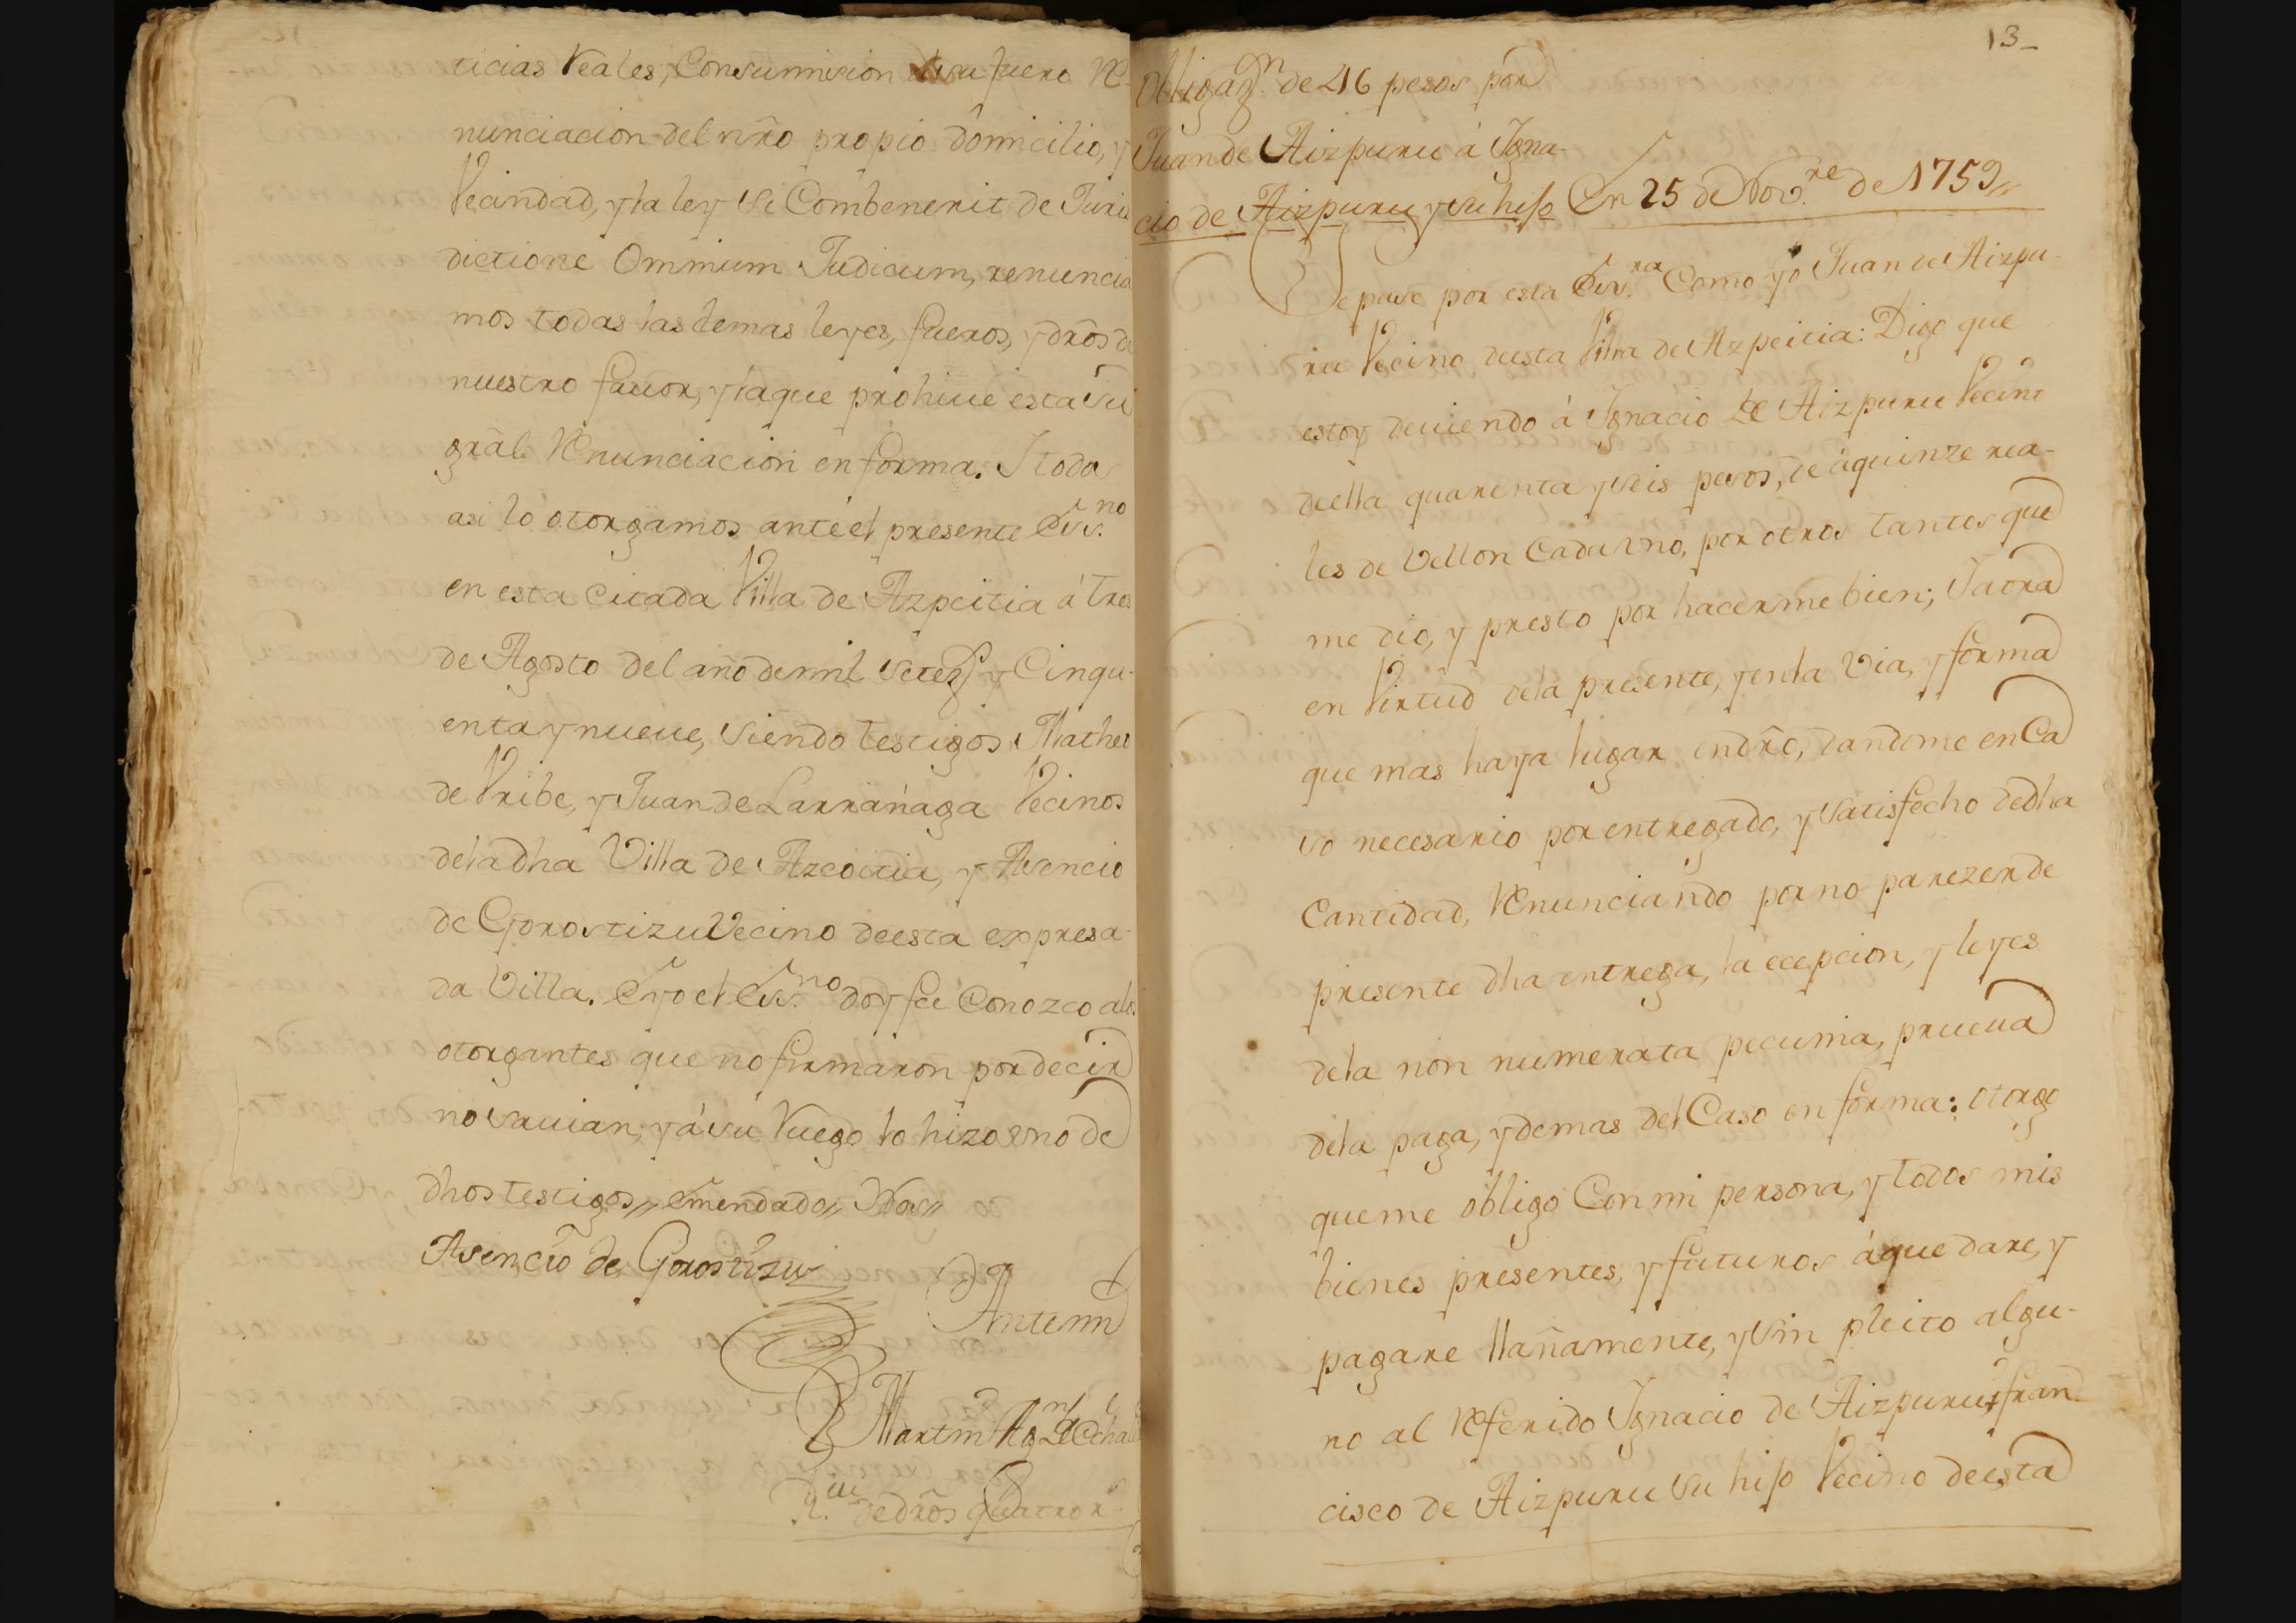 ticias Reales, Consummision de su fuero Re-
nunciacion del nrõ propio domicilio, y
Vecindad, y la ley Si Combenerit de Juris
dictione Ommium Judicum, renuncia
mos todas las demas leyes, fueros, y drõs de
nuestro favor, y la que prohive esta su
grãl Renunciacion en forma. I todos
asi lo otorgamos ante el presente Ess.no
en esta citada Villa de Azpeitia á tres
de Agosto del año de mil setez.s y Cinqu-
enta y nueve, siendo testigos Matheo
de Vribe, y Juan de Larrañaga Vecinos
de la dha Villa de Azcoitia, y Asencio
de Gorostizu Vecino de esta expresa-
da Villa. E yo el Ess.no doy fee Conozco a los
otorgantes que no firmaron por decir
no savian, y á su Ruego lo hizo vno de
dhos testigos,, emendado,,
Asencio de Gorostizu
Ante mi
Martin Ag.n de
R. de drõs quatro r.
13_
Obligaz.n de 46 pesos por
Juan de Aizpuru á Igna-
cio de Aizpuru y su hijo En 25 de Nov.re de 1759,,
Sepase por esta Ess.ra Como yo Juan de Aizpu-
ru Vecino de esta Villa de Azpeitia: Digo que
estoy deviendo á Ignacio de Aizpuru Vecino
de ella quarenta y seis pesos, de á quinze rea-
les de Vellon Cada vno, por otros tantos que
me dio, y presto por hacerme bien; I aora
en Virtud de la presente, y en la Via, y forma
que mas haya lugar en drõ, dandome en Ca
so necesario por entregado, y satisfecho de dha
Cantidad, Renunciando por no parezer de
presente dha entrega, la ecepcion, y leyes
de la non numerata pecunia, prueva
de la paga, y demas del Caso en forma: otorgo
que me obligo Con mi persona, y todos mis
bienes presentes, y futuros á que dare, y
pagare llañamente, y sin pleito algu-
no al Referido Ignacio de Aizpuru, y fran-
cisco de Aizpuru su hijo Vecino de esta